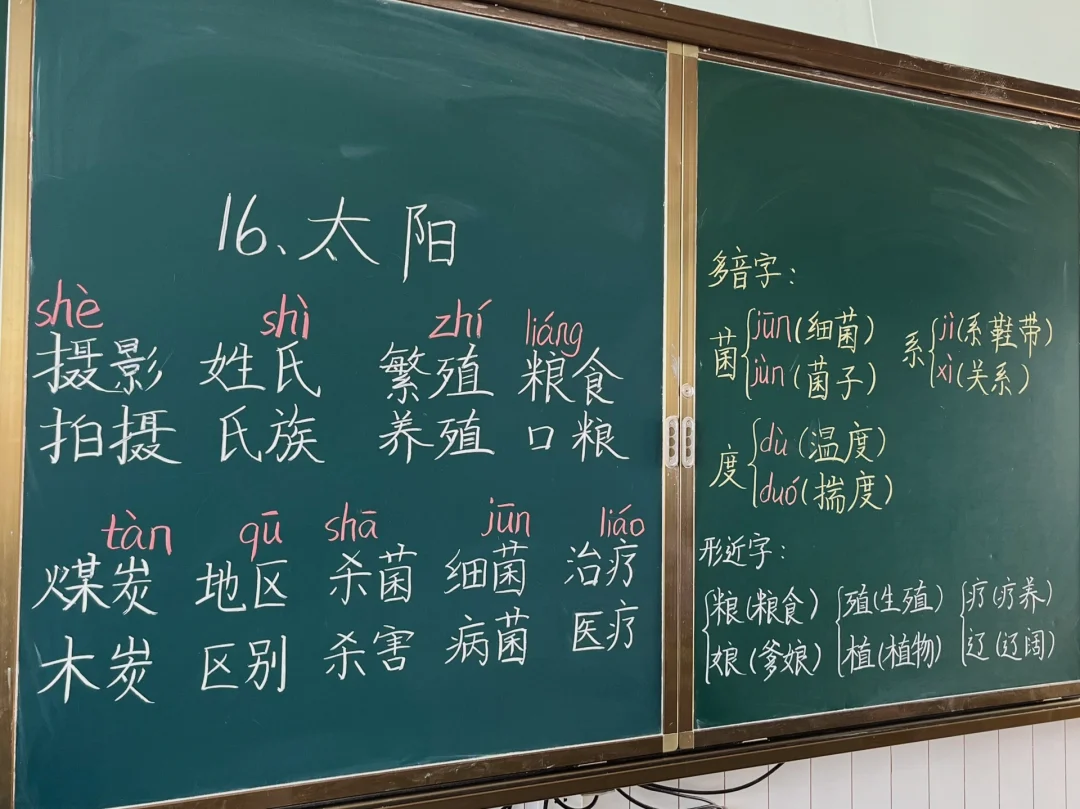 16、太阳
shè shì zhí liáng
摄影 姓氏 繁殖 粮食
拍摄 氏族 养殖 口粮
tàn qū shā jūn liáo
煤炭 地区 杀菌 细菌 治疗
木炭 区别 杀害 病菌 医疗
多音字：
菌 jūn(细菌) jùn(菌子)
系 jì(系鞋带) xì(关系)
度 dù(温度) duó(揣度)
形近字：
粮(粮食) 殖(生殖) 疗(疗养)
娘(爹娘) 植(植物) 辽(辽阔)